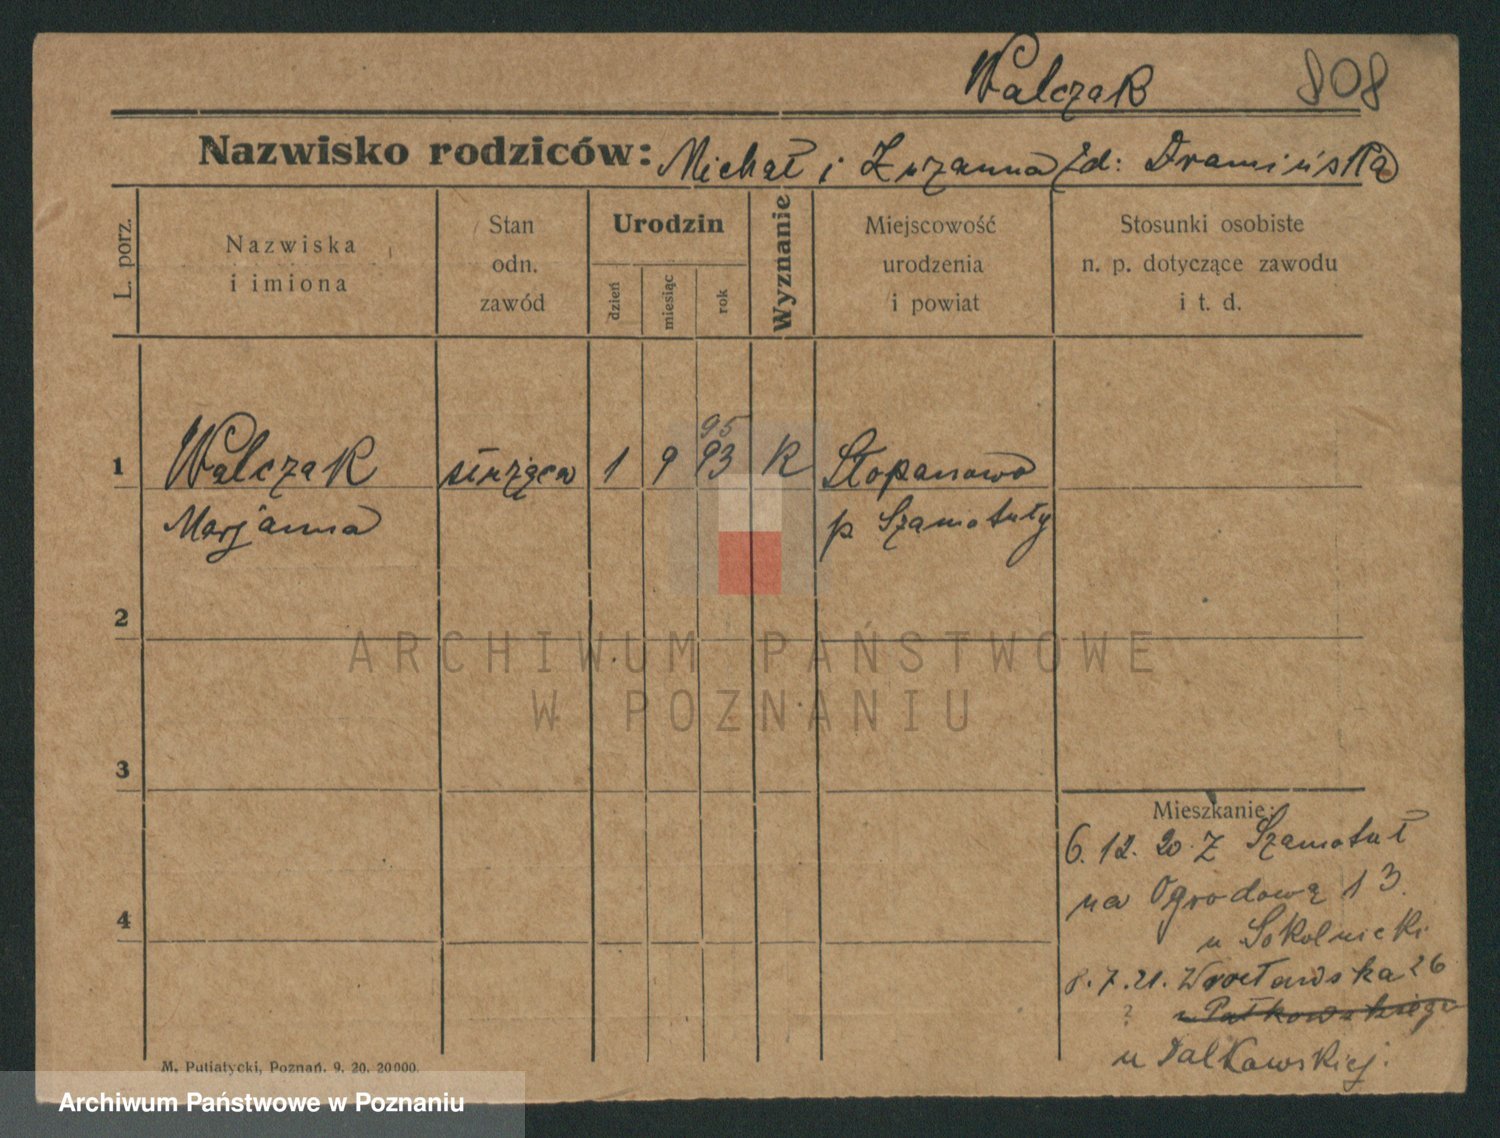 Walczak 808
Nazwisko rodziców: Michał i Zuzanna zd: Dramińska
L. porz.
Nazwiska
i imiona
Stan
odn.
zawód
Urodzin
dzień
miesiąc
rok
Wyznanie
Miejscowość
urodzenia
i powiat
Stosunki osobiste
n. p. dotyczące zawodu
i t. d.
95
1 Walczak służąca 1 9 93 K Stopanowo
Marjanna p Szamotuły
2
3
4
Mieszkanie:
6. 12. 20. Z Szamotuł
na Ogrodową 13.
u Sokolnicki
8. 7. 21. Wrocławska 26
?
u Pałkowskiego
u Dalkowskiej.
M. Putiatycki, Poznań. 9. 20. 20000.
ARCHIWUM PAŃSTWOWE
W POZNANIU
Archiwum Państwowe w Poznaniu